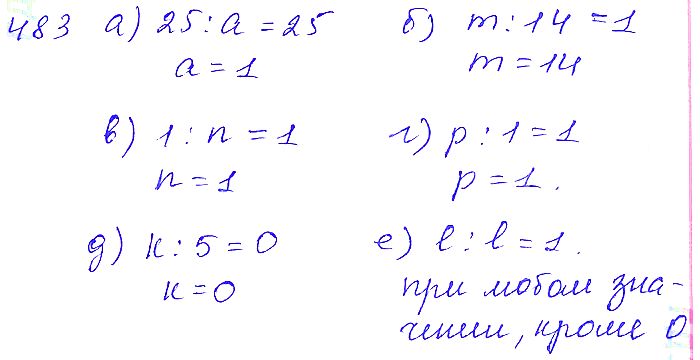 483 а) 25 : a = 25 б) m : 14 = 1
a = 1 m = 14
в) 1 : n = 1 г) p : 1 = 1
n = 1 p = 1.
д) k : 5 = 0 е) l : l = 1.
k = 0 при любом зна-
чении, кроме 0